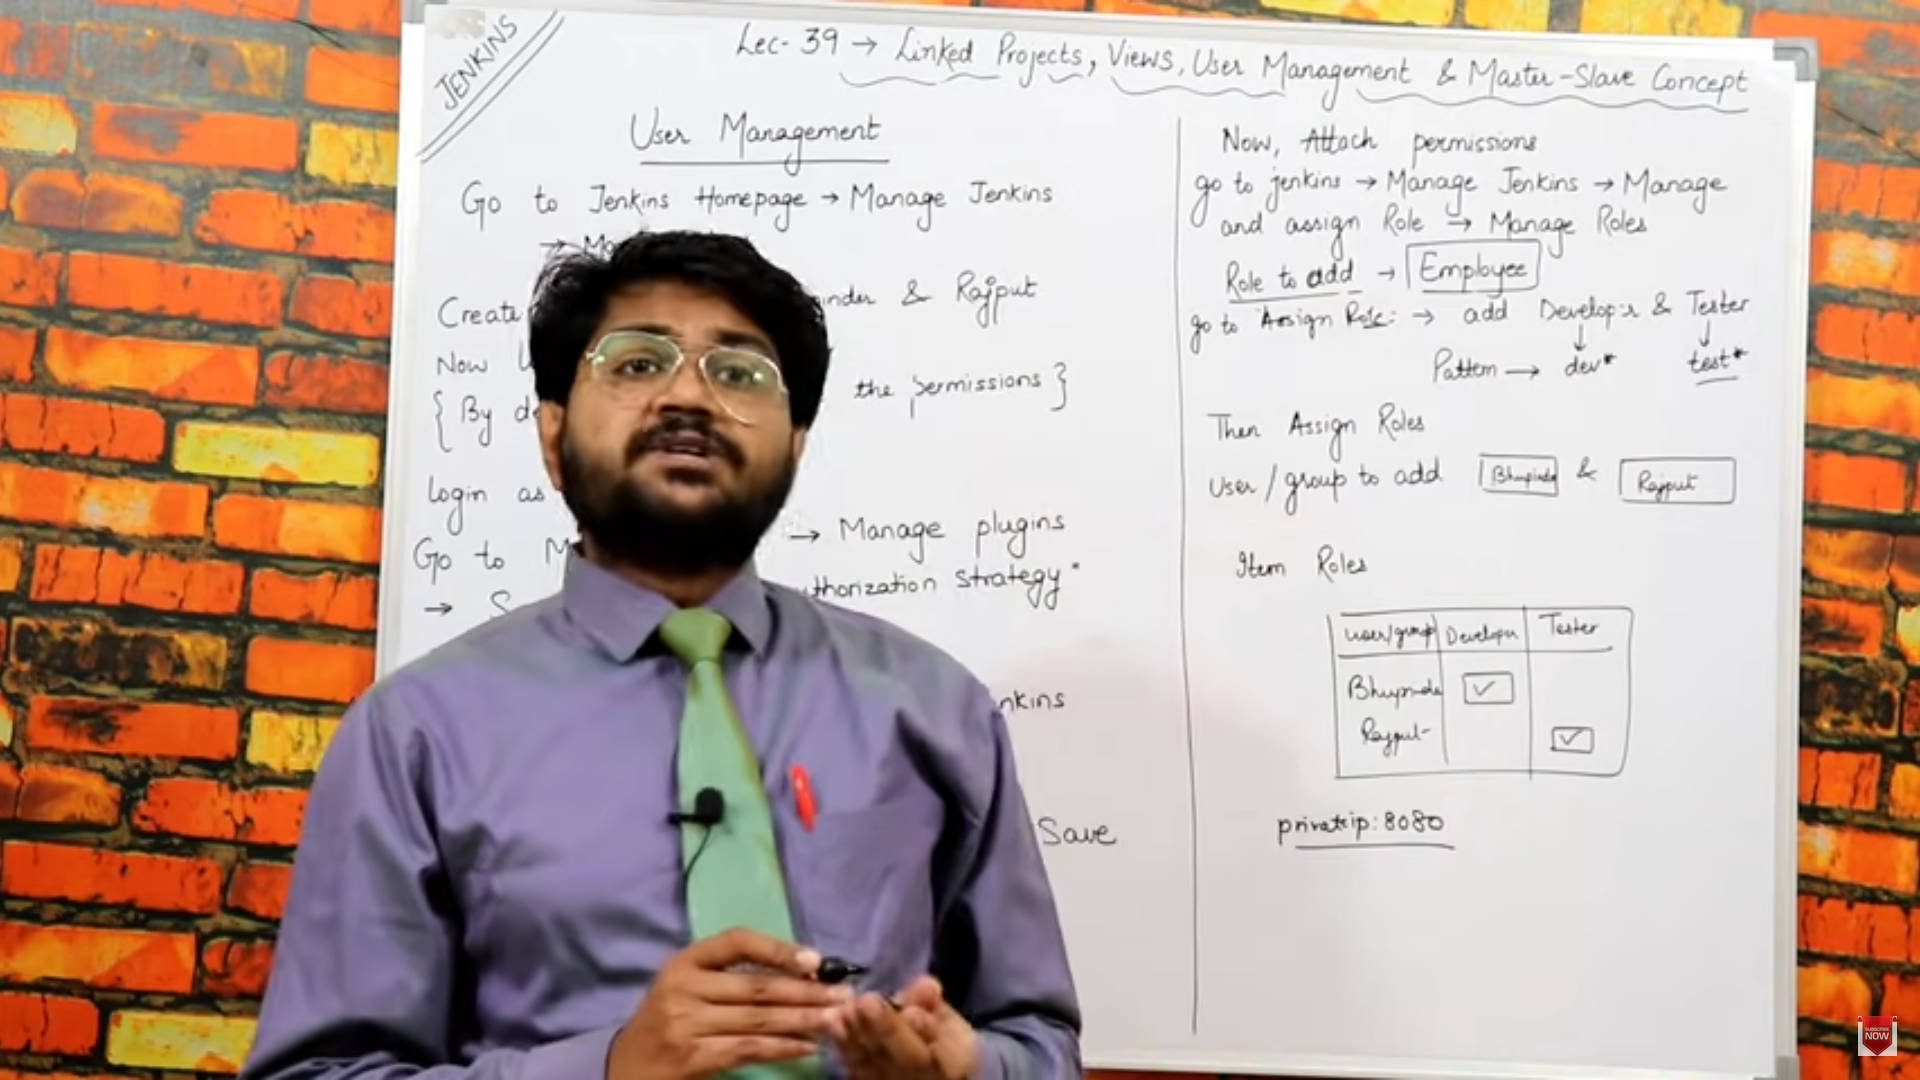 JENKINS
Lec-39 → Linked Projects, Views, User Management & Master-Slave Concept
User Management
Go to Jenkins Homepage → Manage Jenkins
→
Create & Rajput
Now
{ By the permissions }
Login as
Go to → Manage plugins
→ strategy"
Save
Now, Attach permissions
go to jenkins → Manage Jenkins → Manage
and assign Role → Manage Roles
Role to add → Employee
go to Assign Role: → add & Tester
Pattern → dev* test*
Then Assign Roles
User/group to add & Rajput
Item Roles
user/group Developer Tester
✓
Rajput ✓
privateip:8080
SUBSCRIBE
NOW